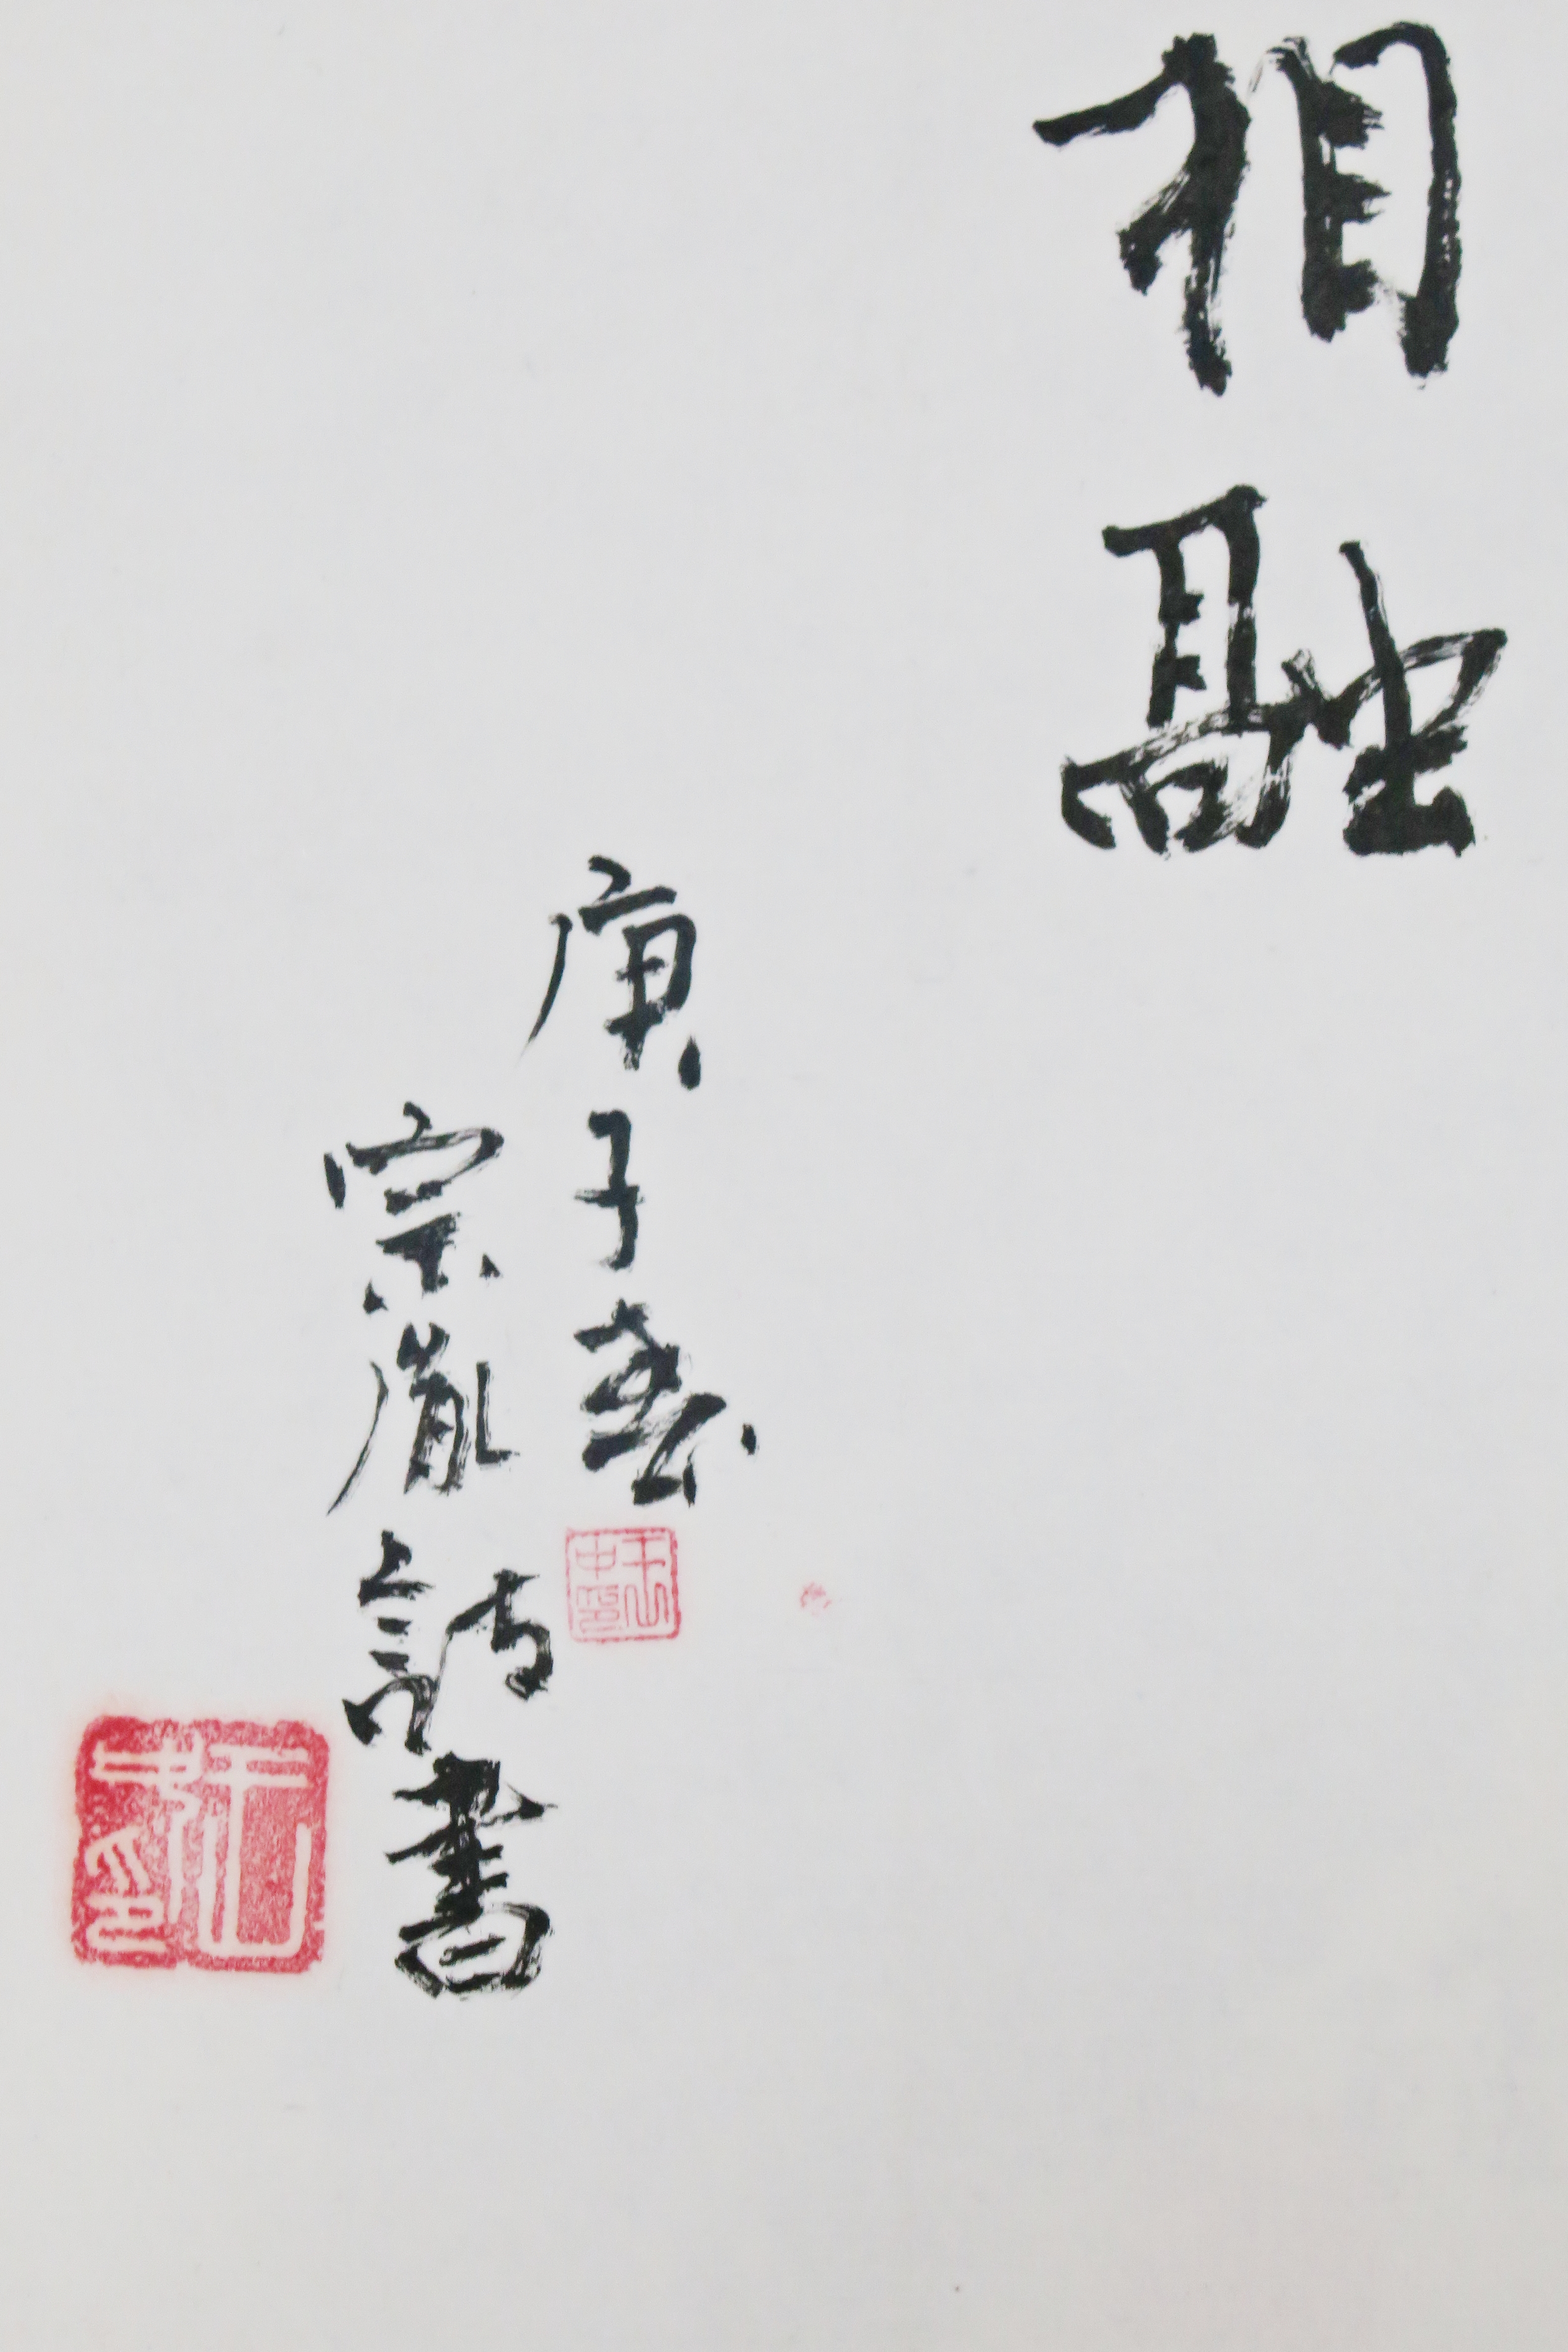 相融
庚子春
宗胤詩書